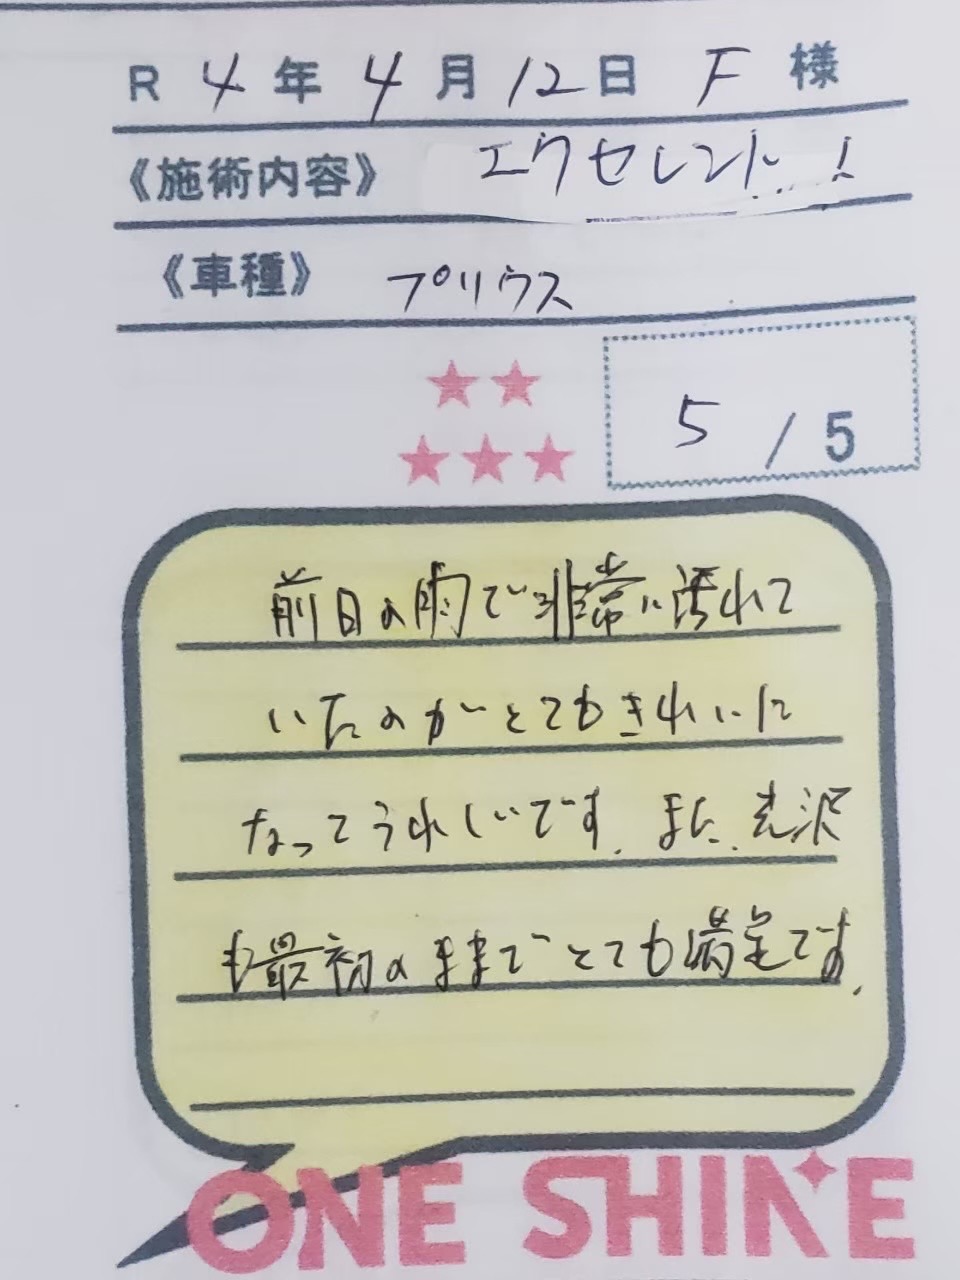 R 4 年 4 月 12 日 F 様
《施術内容》 エクセレント!
《車種》 プリウス
★★
★★★
5 / 5
前日の雨で非常に汚れて
いたのがとてもきれいに
なってうれしいです。また、光沢
も最初のままでとても満足です。
ONE SHINE